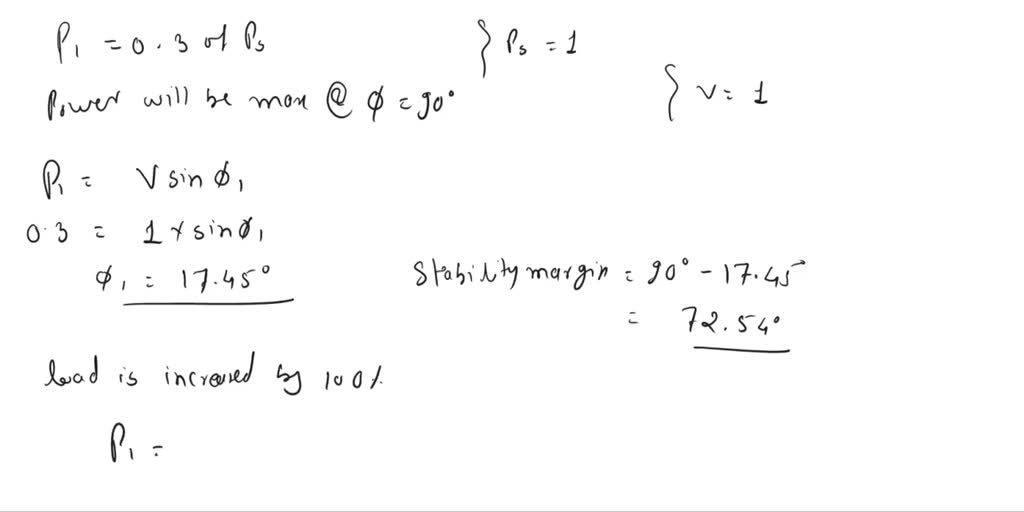 P₁ = 0.3 of Ps } Ps = 1
Power will be max @ ϕ = 90° } V = 1
P₁ = V sin ϕ₁
0.3 = 1 × sin ϕ₁
ϕ₁ = 17.45°
Stability margin = 90° - 17.45°
= 72.54°
load is increased by 100%
P₁ =